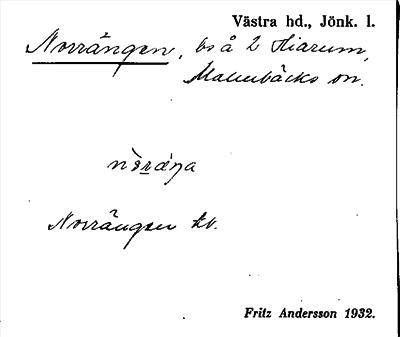 Västra hd., Jönk. l.
Norrängen, bs å 2 Hiarum,
Malmbäcks sn.
Norrängen tv.
Fritz Andersson 1932.